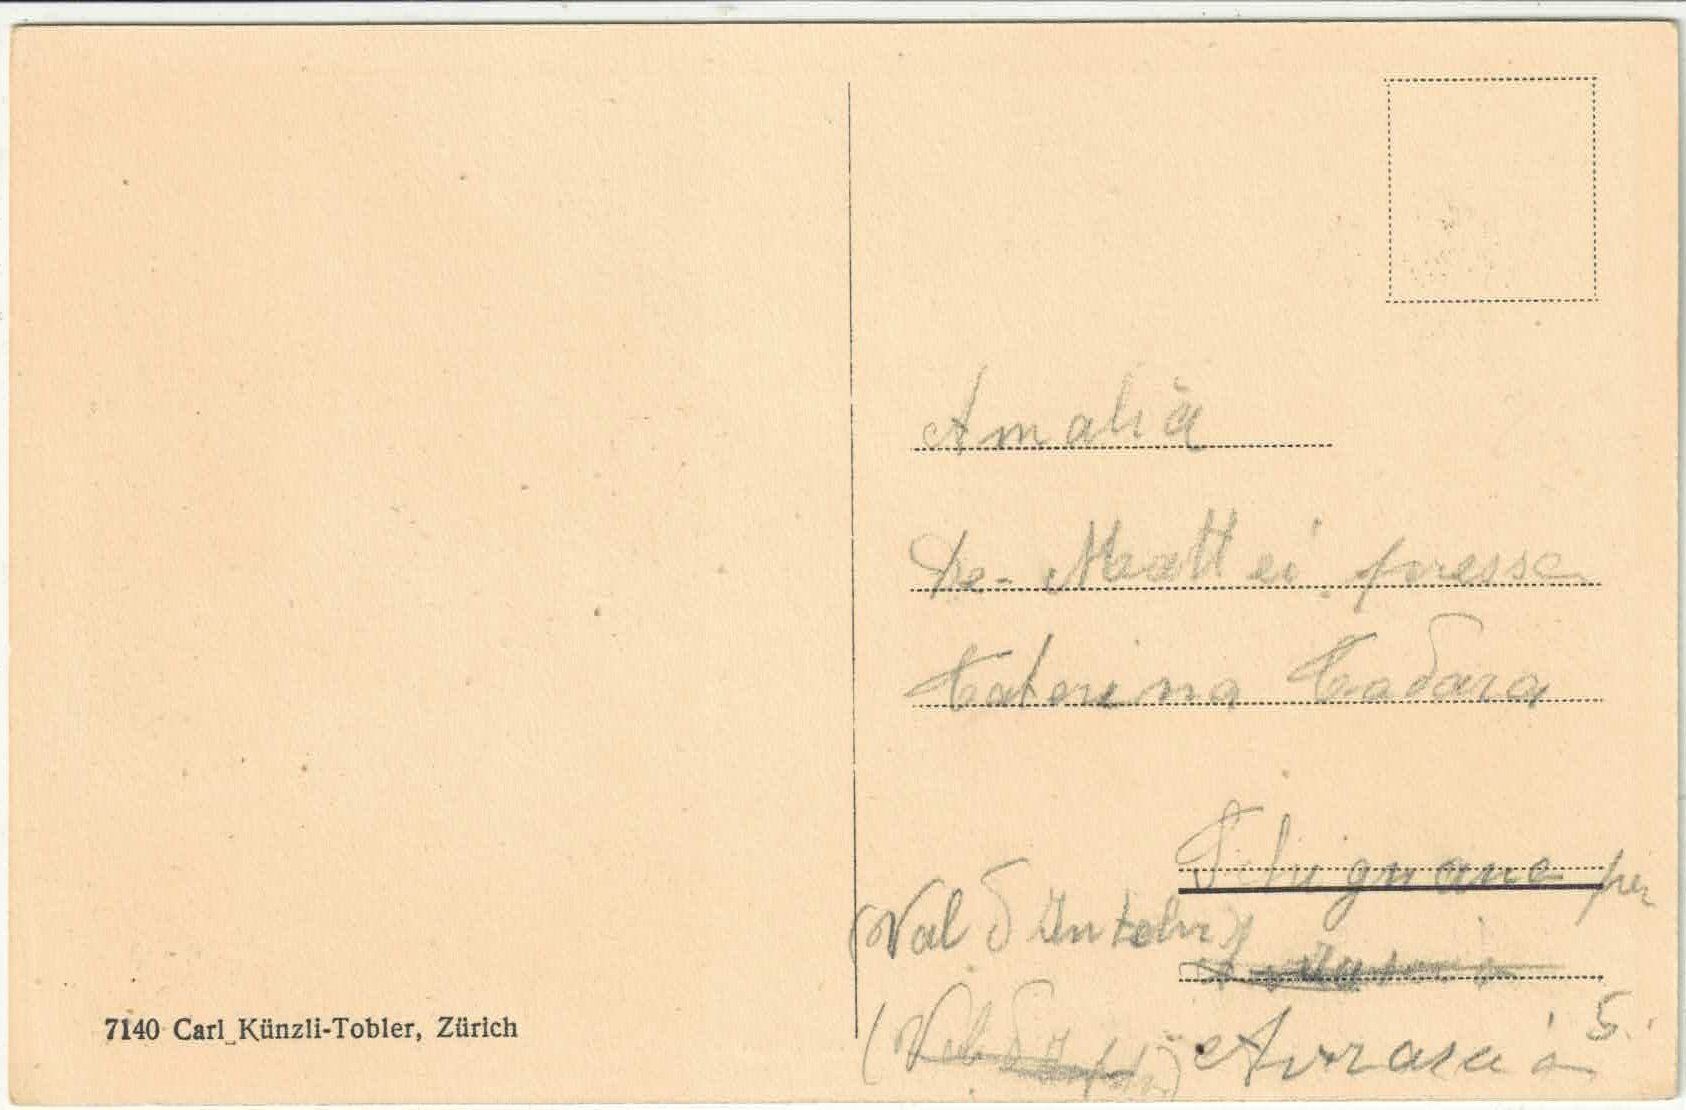 Amalia
De-Mattei presso
Caterina Cadara
Schignano per
(Val d'Intelvi)
(Val d'
7140 Carl Künzli-Tobler, Zürich